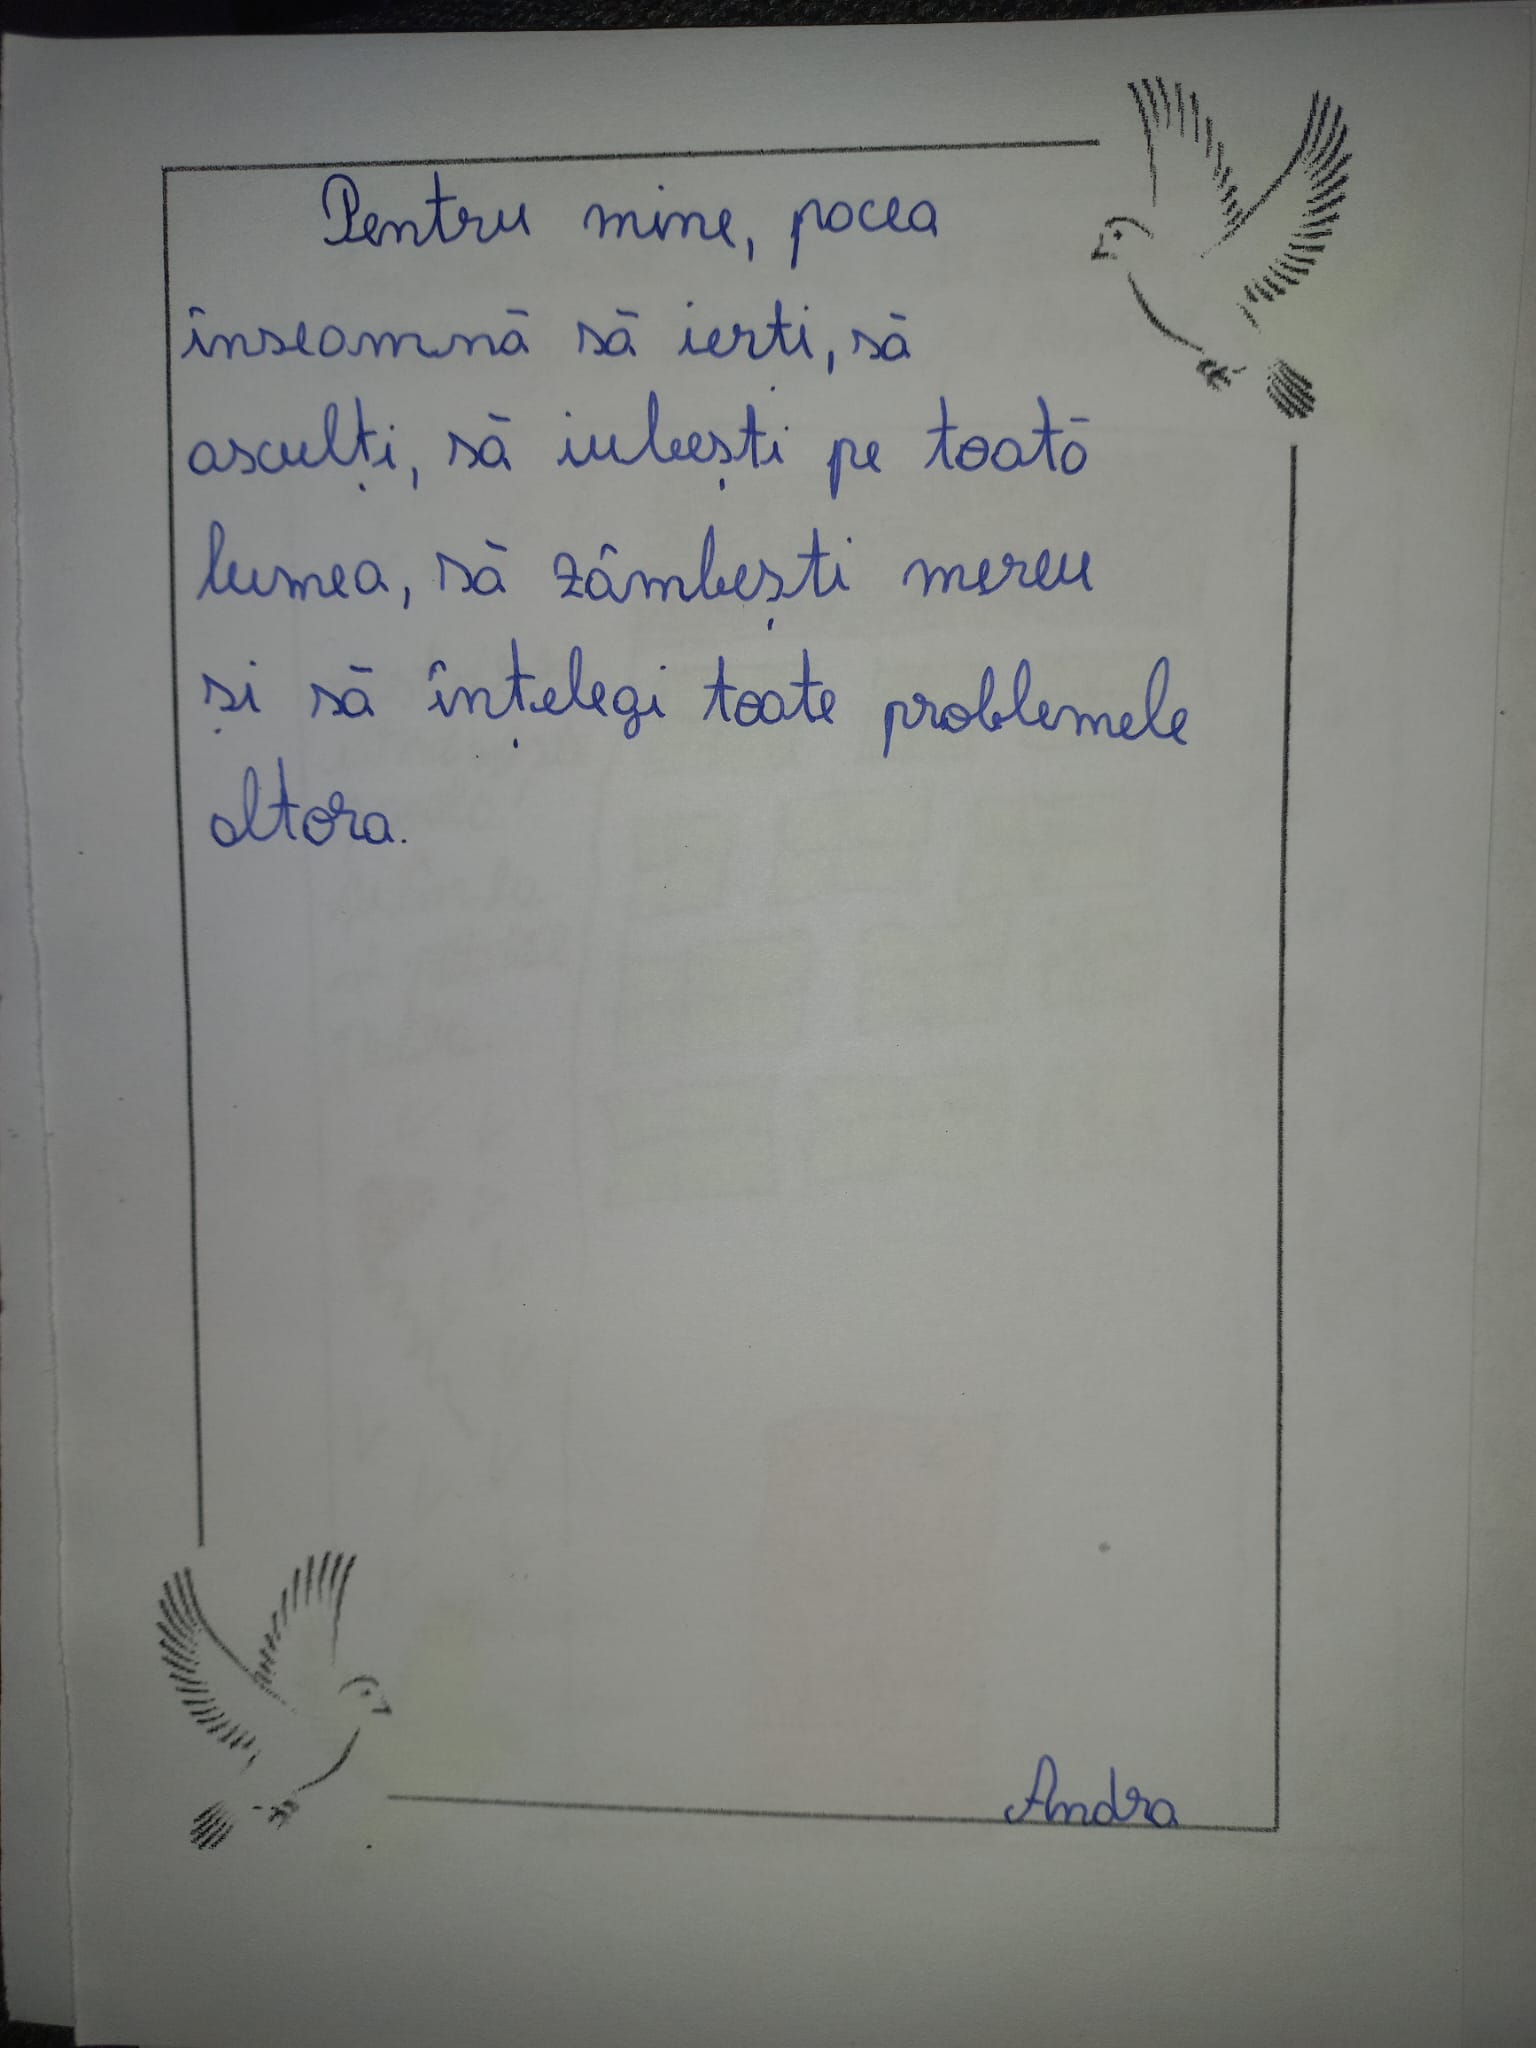 Pentru mine, pacea
înseamnă să ierți, să
asculți, să iubești pe toată
lumea, să zâmbești mereu
și să înțelegi toate problemele
altora.
Andra